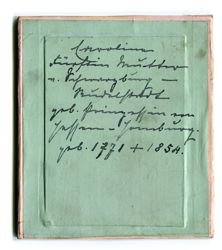 Caroline
Fürstin Mutter
v. Schwarzburg –
Rudolstadt
geb. Prinzessin von
Hessen – Homburg.
geb. 1771 + 1854